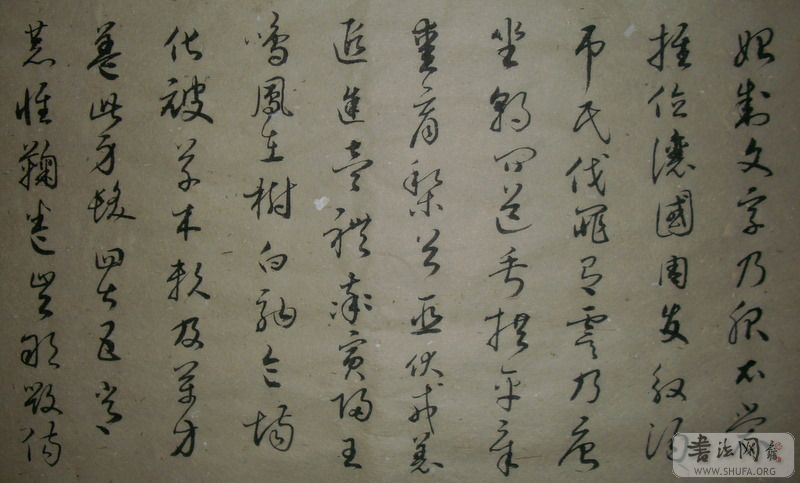 始制文字乃服衣裳
推位讓國周發殷湯
弔民伐罪有虞陶唐
坐朝問道垂拱平章
愛育黎首臣伏戎羌
遐邇壹體率賓歸王
鳴鳳在樹白駒食場
化被草木賴及萬方
蓋此身髮四大五常
恭惟鞠養豈敢毀傷
書法网
WWW.SHUFA.ORG